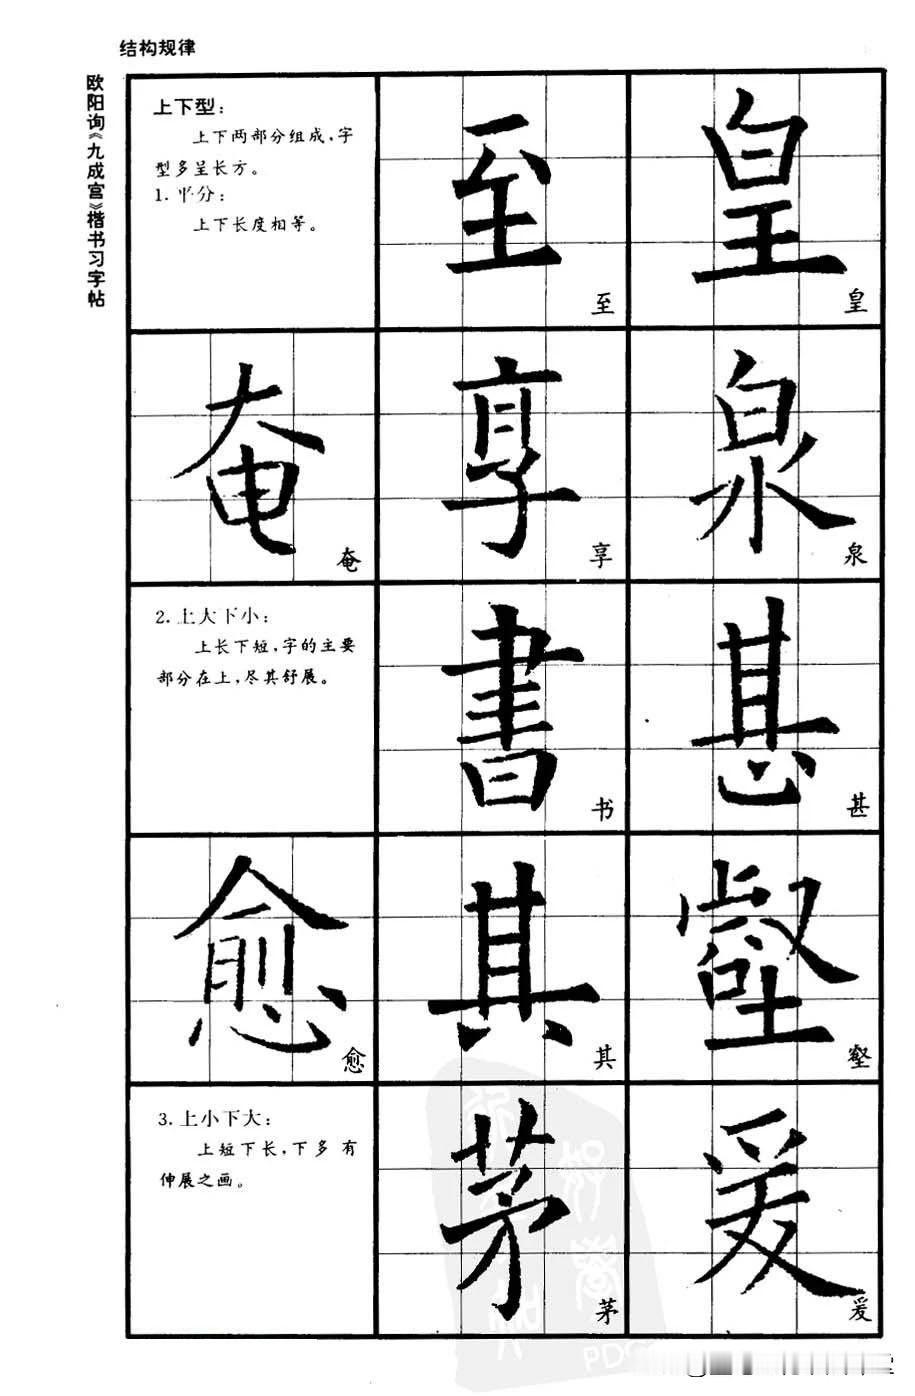 结构规律
欧阳询《九成宫》楷书习字帖
上下型：
上下两部分组成，字
型多呈长方。
1. 平分：
上下长度相等。
至
至
皇
皇
奄
奄
享
享
泉
泉
2. 上大下小：
上长下短，字的主要
部分在上，尽其舒展。
書
书
甚
甚
愈
愈
其
其
壑
3. 上小下大：
上短下长，下多有
伸展之画。
茅
茅
爰
爰
PD